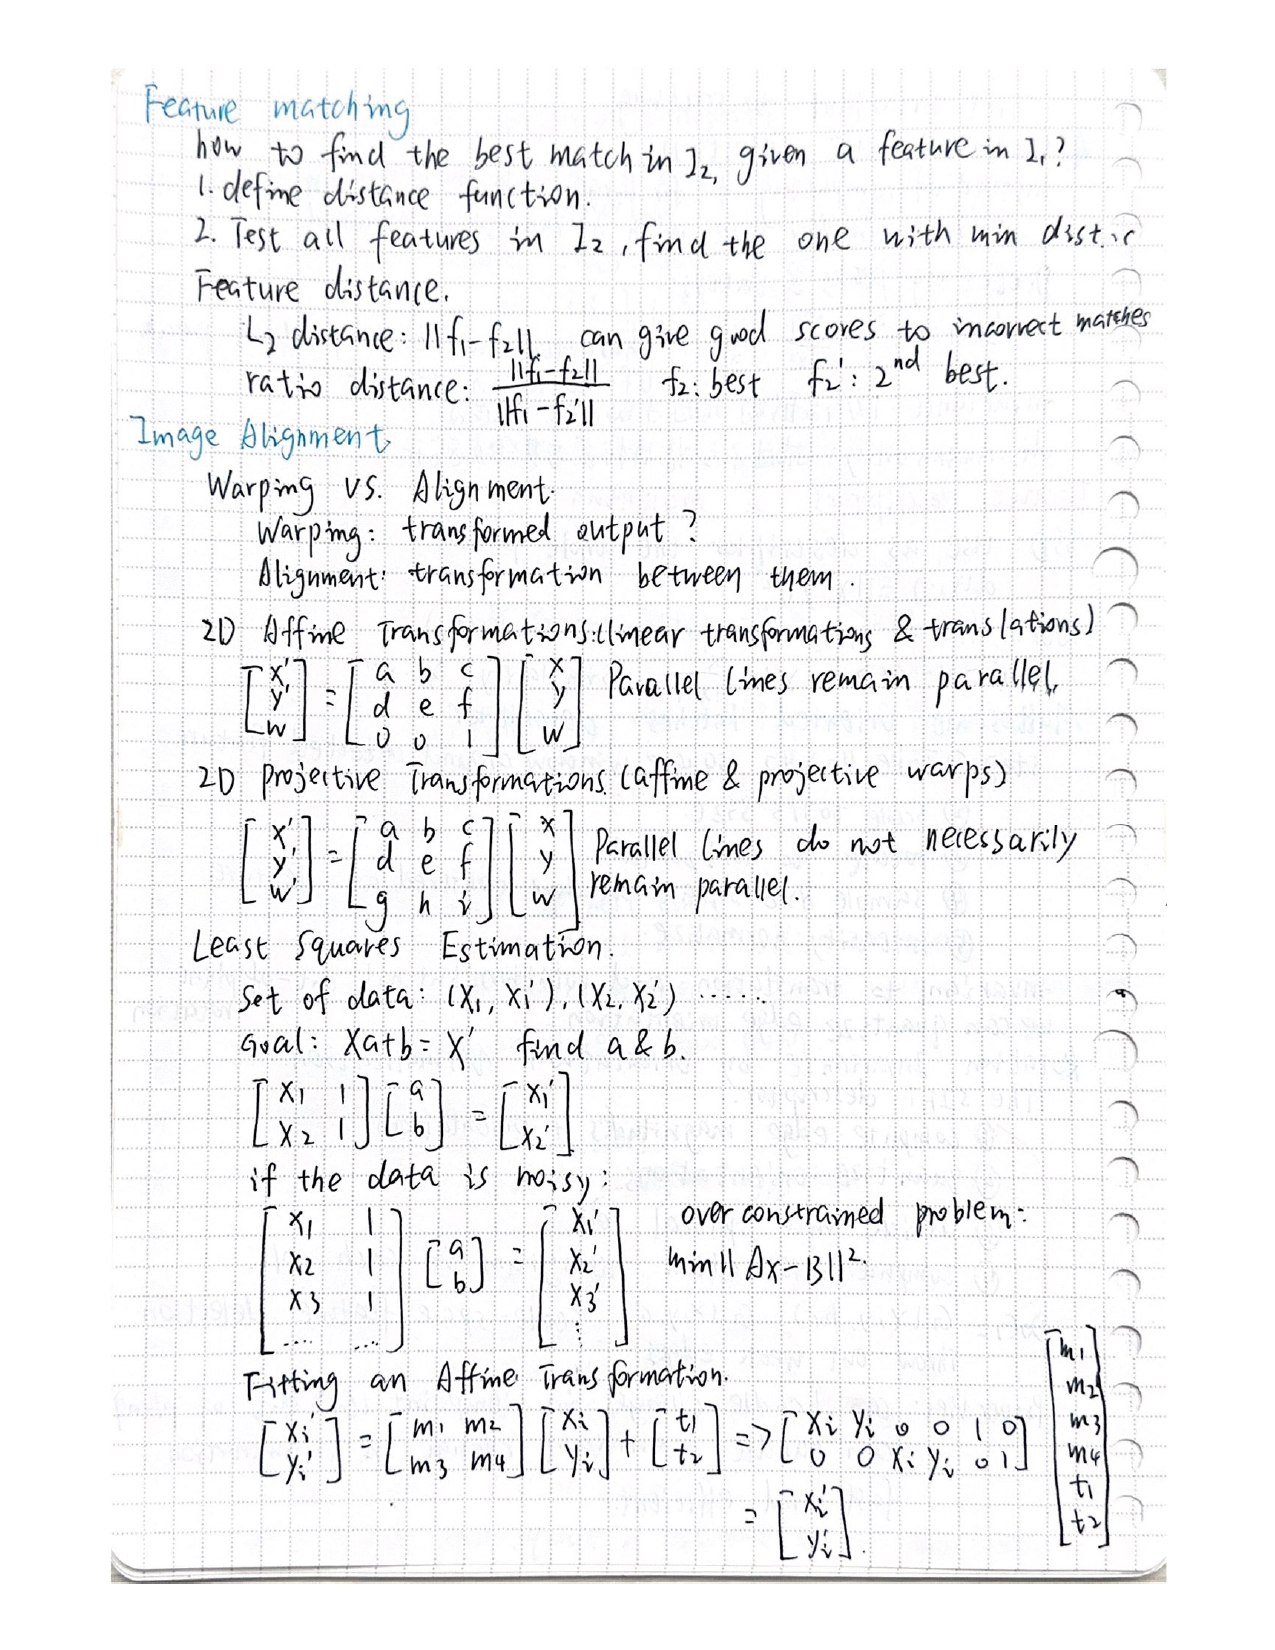 Feature matching
how to find the best match in I₂, given a feature in I₁?
1. define distance function.
2. Test all features in I₂, find the one with min
Feature distance.
L₂ distance: ||f₁-f₂||. can give good scores to incorrect matches
ratio distance: ||f₁-f₂|| / ||f₁-f₂'|| f₂: best f₂': 2nd best.
Image Alignment.
Warping vs. Alignment.
Warping: transformed output?
Alignment: transformation between them.
2D Affine Transformations: (linear transformations & translations)
[x' y' w] = [a b c; d e f; 0 0 1] [x y w] Parallel lines remain parallel.
2D Projective Transformations (affine & projective warps)
[x' y' w'] = [a b c; d e f; g h i] [x y w] Parallel lines do not necessarily
remain parallel.
Least Squares Estimation.
Set of data: (X₁, X₁'), (X₂, X₂') ······
Goal: Xa+b = X' find a & b.
[X₁ 1; X₂ 1] [a b] = [X₁' X₂']
if the data is noisy:
[X₁ 1; X₂ 1; X₃ 1; .... ...] [a b] = [X₁' X₂' X₃' ⋮] over constrained problem:
min || Ax-B ||².
Fitting an Affine Transformation.
[xi' yi'] = [m₁ m₂; m₃ m₄] [xi yi] + [t₁ t₂] => [xi yi 0 0 1 0; 0 0 xi yi 0 1] [m₁ m₂ m₃ m₄ t₁ t₂]
= [xi' yi'].